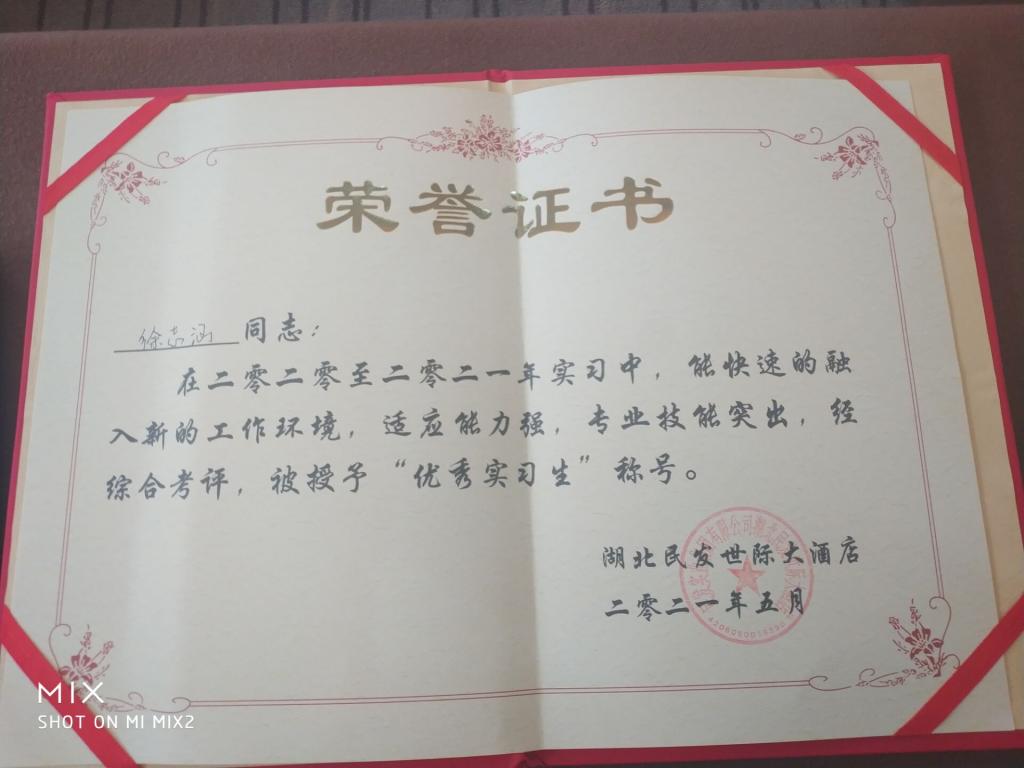 荣誉证书
徐志涵 同志：
在二零二零至二零二一年实习中，能快速的融
入新的工作环境，适应能力强，专业技能突出，经
综合考评，被授予“优秀实习生”称号。
湖北民发世际大酒店
二零二一年五月
MIX
SHOT ON MI MIX2